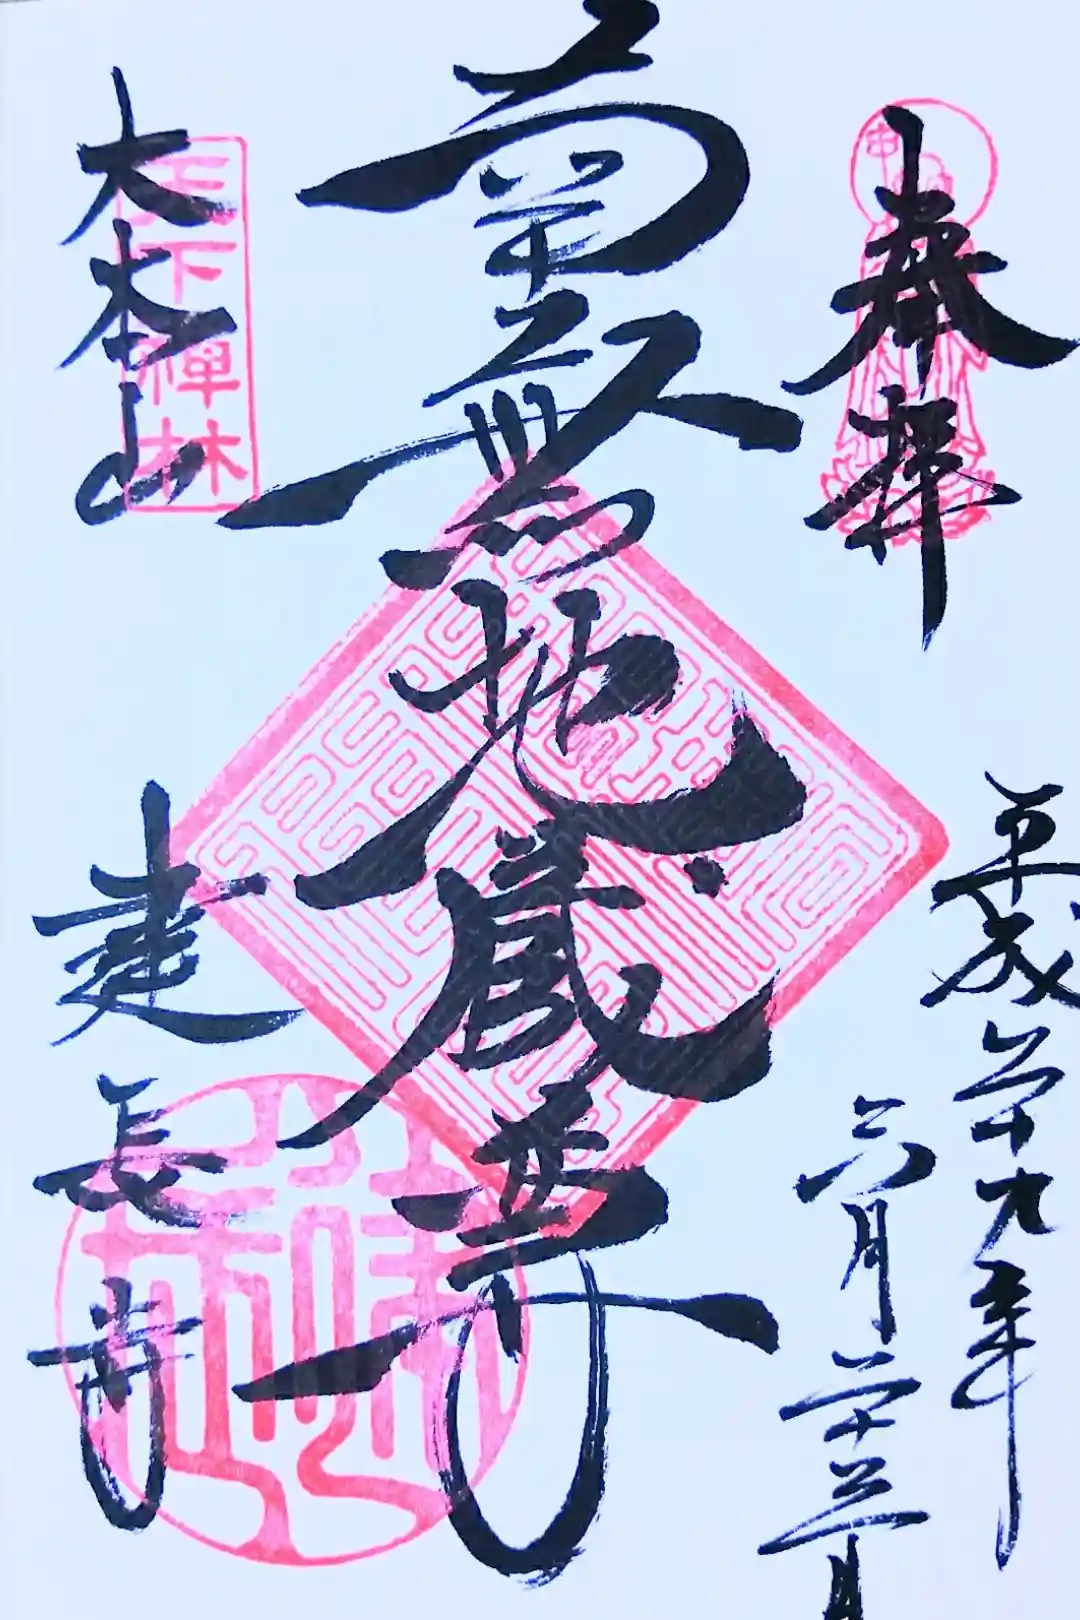 奉拝
平成二十九年
六月二十三日
南無地蔵尊
天下禅林
大本山
建長寺